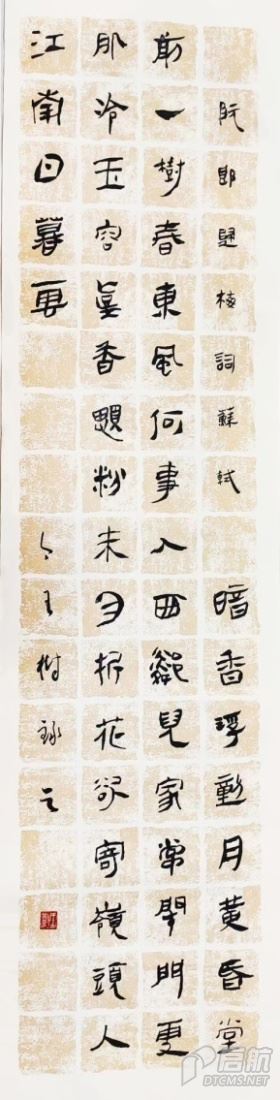 阮郎歸梅詞蘇軾 暗香浮動月黃昏堂
前一樹春東風何事入西鄰兒家常閉門雪
肌冷玉容真香顋粉未勻折花欲寄嶺頭人
江南日暮雲 王樹錄之
启航
DTCMS.NET